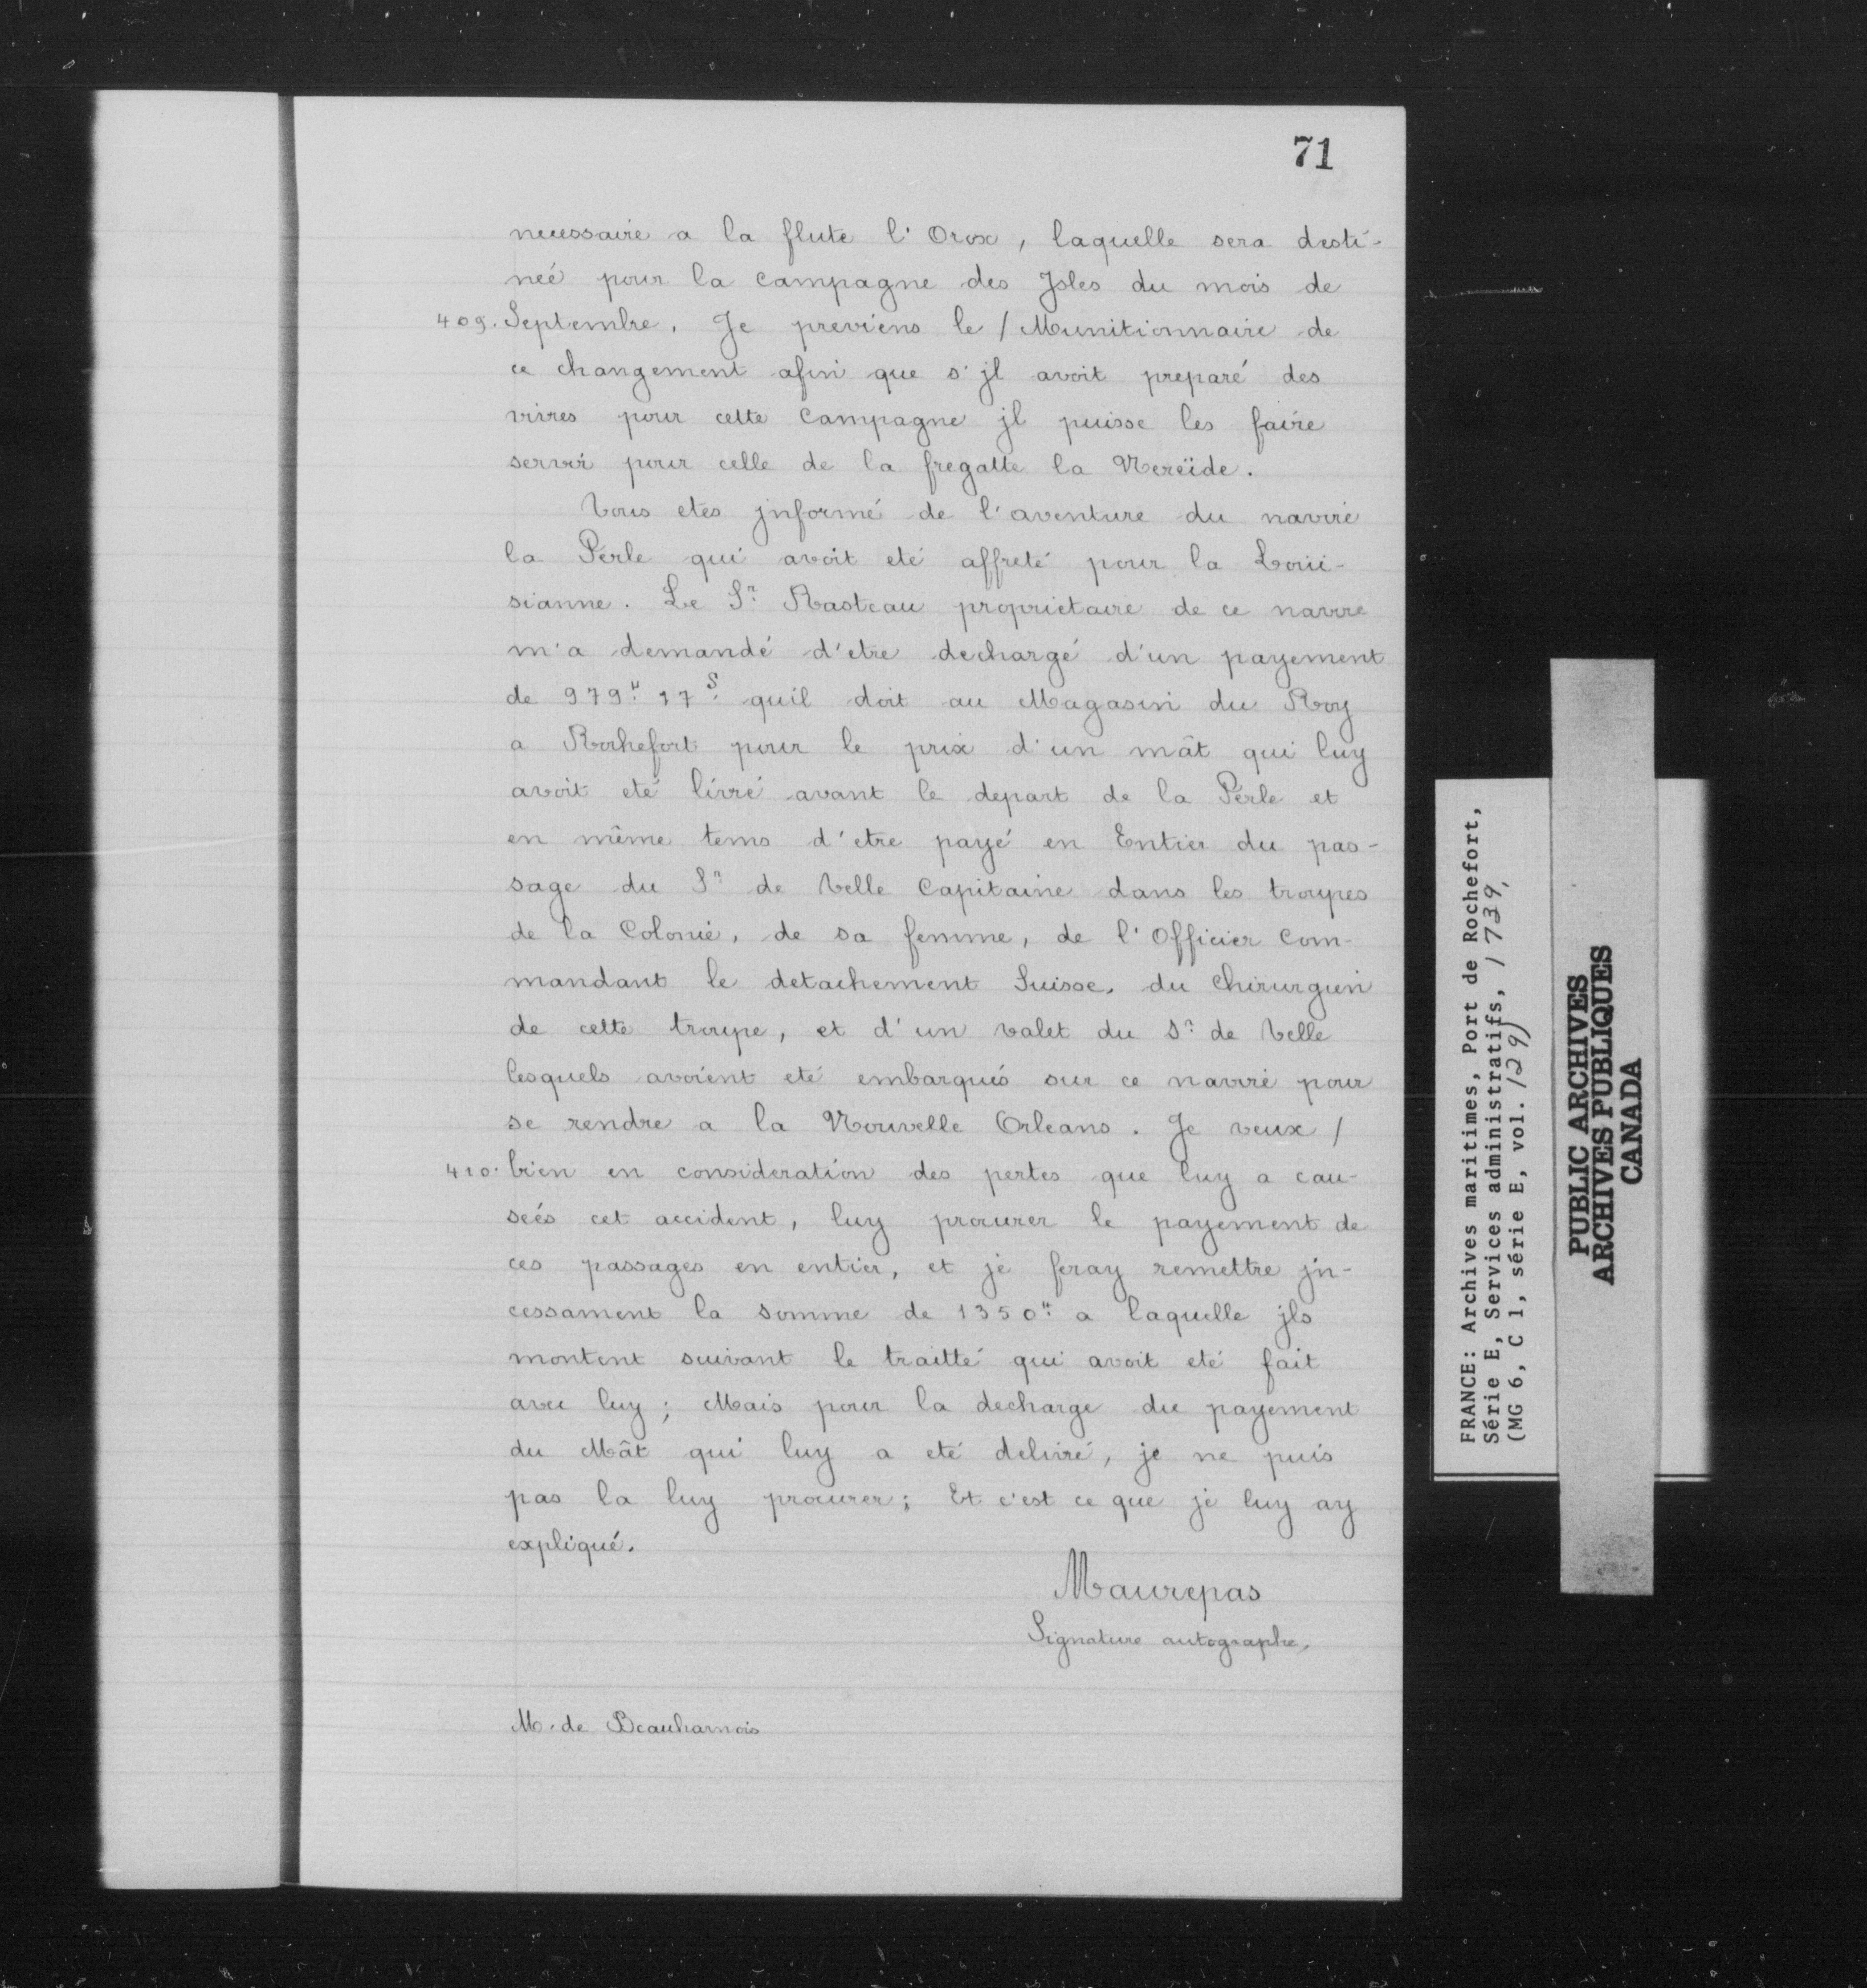 71
necessaire a la flute l'Orox, laquelle sera desti-
neé pour la campagne des Jsles du mois de
409. Septembre. Je previens le / Munitionnaire de
ce changement afin que s'jl avoit preparé des
vivres pour cette campagne jl puisse les faire
servir pour celle de la fregatte la Nereïde.
Vous etes jnformé de l'aventure du navire
la Perle qui avoit eté affreté pour la Loui-
sianne. Le Sr. Rasteau proprietaire de ce navire
m'a demandé d'etre dechargé d'un payement
de 979# 17s. quil doit au Magasin du Roy
a Rochefort pour le prix d'un mât qui luy
avoit eté livré avant le depart de la Perle et
en même tems d'etre payé en Entier du pas-
sage du Sr. de Velle Capitaine dans les troupes
de la Colonie, de sa femme, de l'Officier com-
mandant le detachement Suisse, du chirurgien
de cette troupe, et d'un valet du Sr. de Velle
lesquels avoient eté embarqués sur ce navire pour
se rendre a la Nouvelle Orleans. Je veux /
410. bien en consideration des pertes que luy a cau-
seés cet accident, luy procurer le payement de
ces passages en entier, et je feray remettre jn-
cessament la somme de 1350# a laquelle jls
montent suivant le traitté qui avoit eté fait
avec luy; Mais pour la decharge du payement
du Mât qui luy a eté delivré, je ne puis
pas la luy procurer; Et c'est ce que je luy ay
expliqué.
Maurepas
Signature autographe,
M. de Beauharnois
FRANCE: Archives maritimes, Port de Rochefort,
Série E, Services administratifs, 1739,
(MG 6, C 1, série E, vol. 129)
PUBLIC ARCHIVES
ARCHIVES PUBLIQUES
CANADA